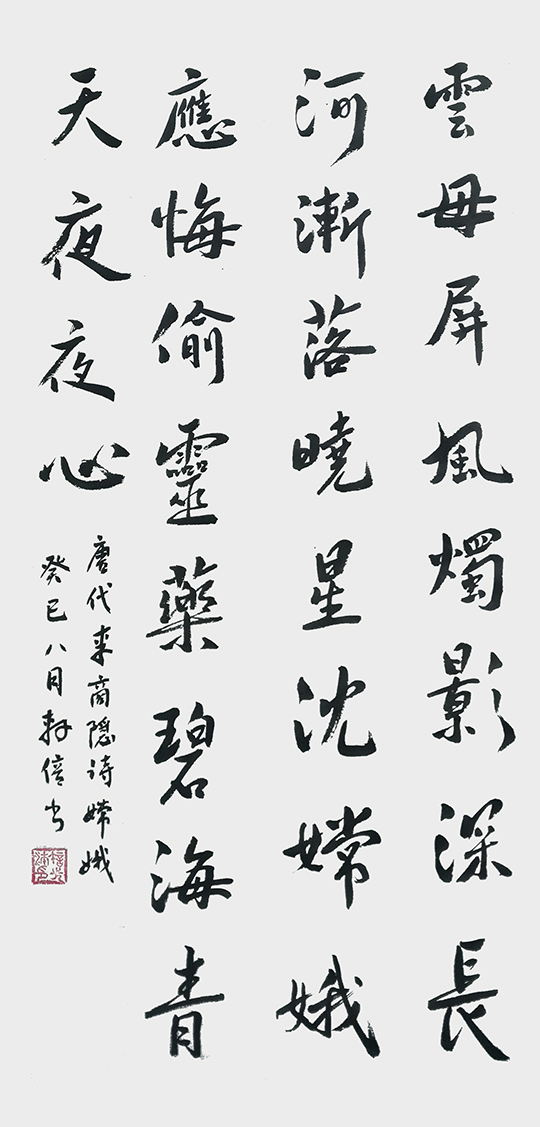 雲母屏風燭影深長
河漸落曉星沈嫦娥
應悔偷靈藥碧海青
天夜夜心
唐代李商隐诗嫦娥
癸巳八月信书